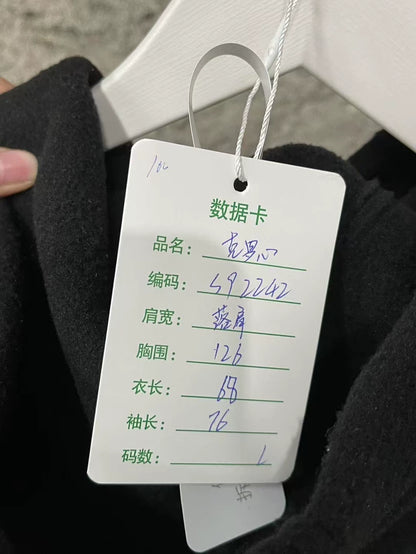 数据卡
品名:克罗心
编码:592242
肩宽:落肩
胸围:126
衣长:68
袖长:76
码数:L